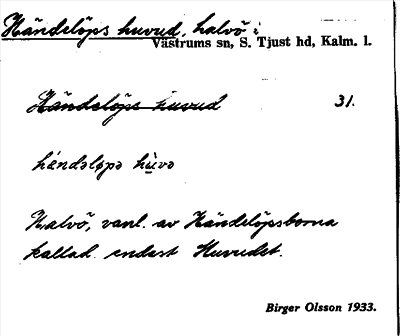 Händelöps huvud, halvö i
Västrums sn, S. Tjust hd, Kalm. l.
Händelöps huvud 31.
hǽndəløpə hù̱və
Halvö, vanl. av Händelöpsborna
kallad endast Huvudet.
Birger Olsson 1933.